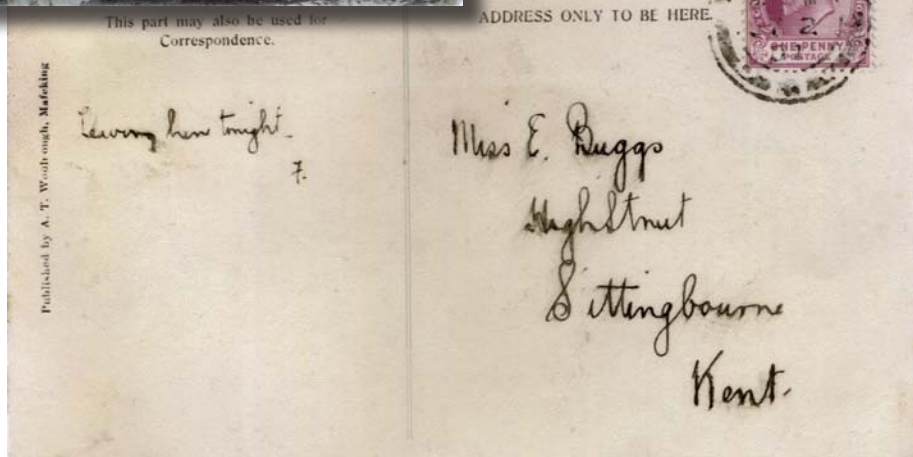 This part may also be used for
Correspondence.
ADDRESS ONLY TO BE HERE.
2
ONE PENNY
POSTAGE
Published by A. T. Woolnough, Mafeking
Leaving here tonight.
F.
Miss E. Buggs
High Street
Sittingbourne
Kent.